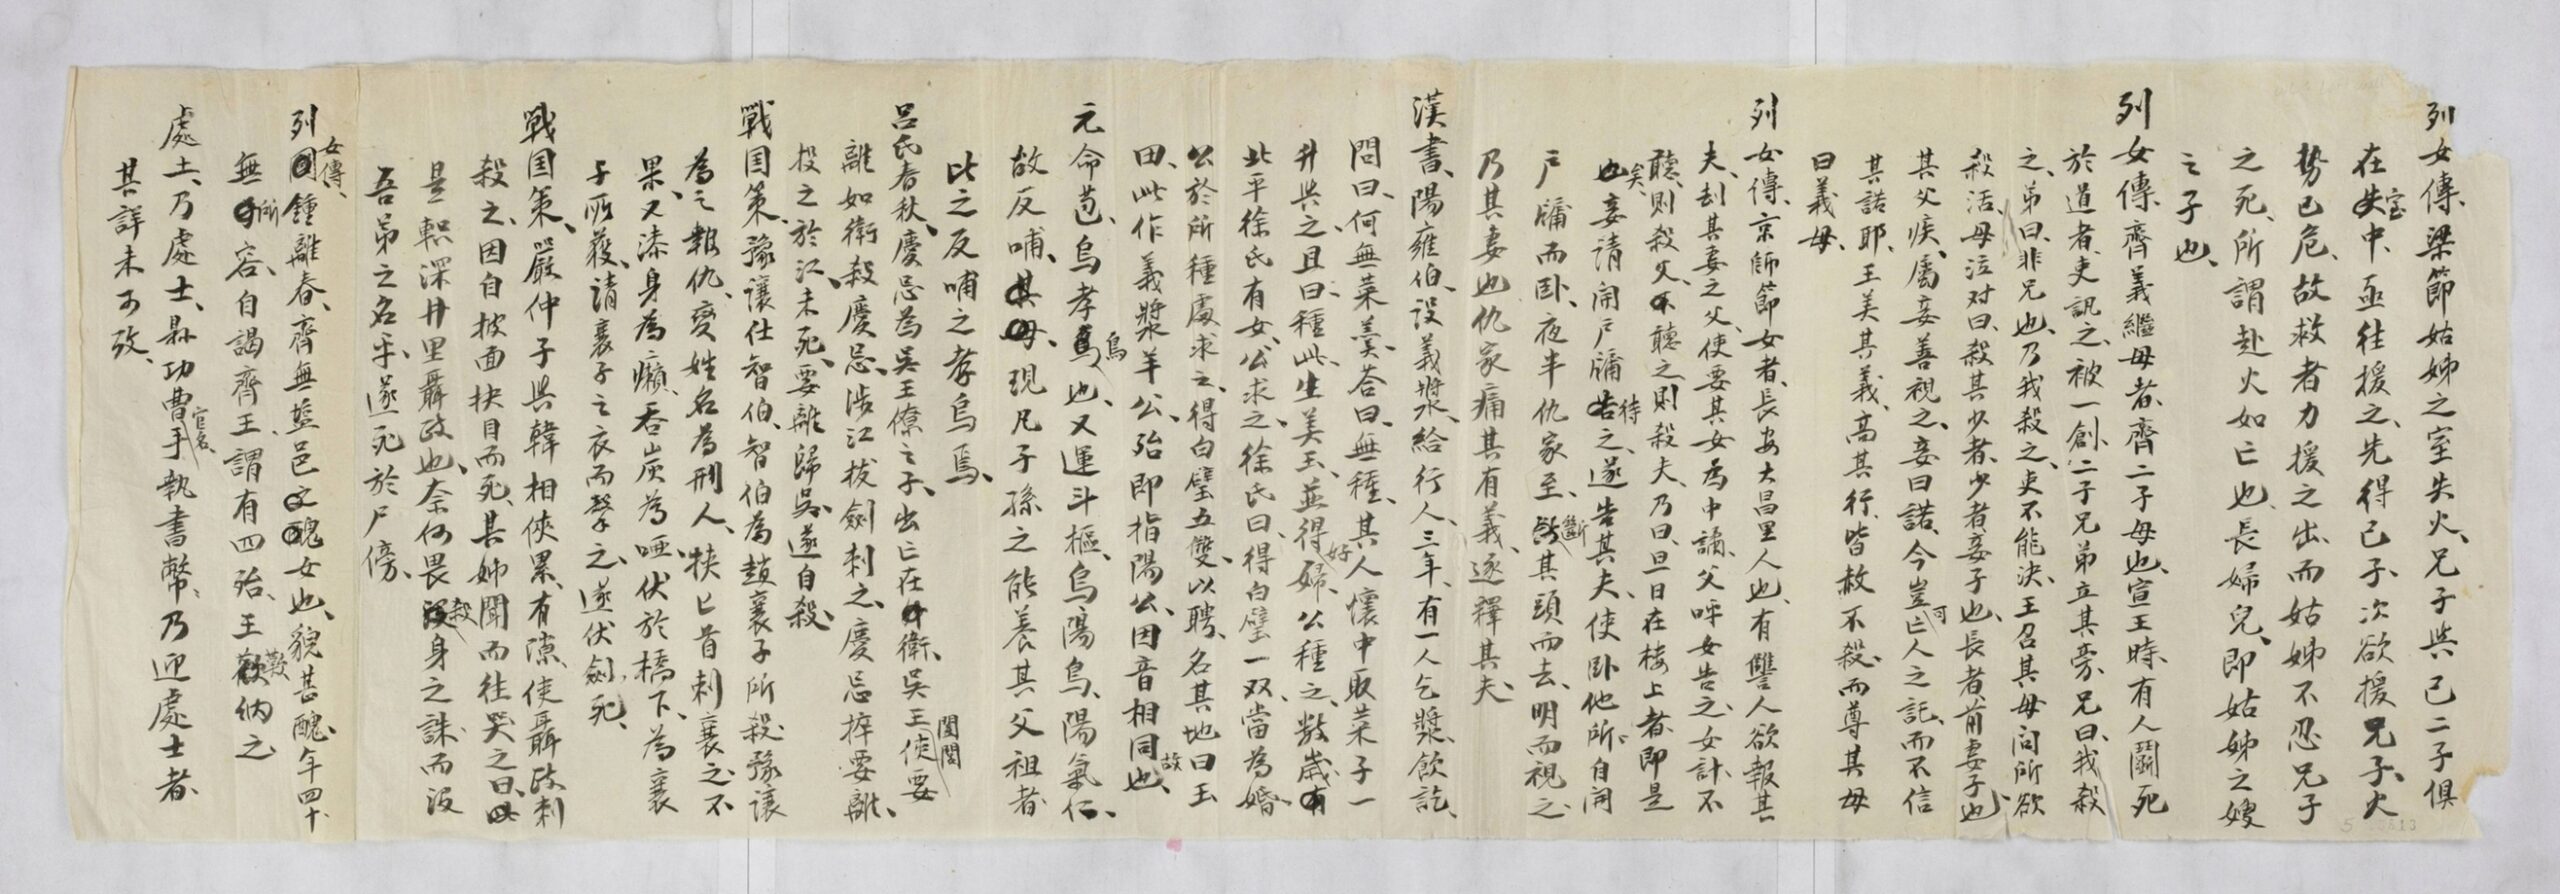 列女傳、梁節姑姊之室失火、兄子與己二子俱
在室中、亟往援之、先得己子、次欲援兄子、火
勢已危、故救者力援之出、而姑姊不忍兄子
之死、所謂赴火如亡也、長婦兒、即姑姊之嫂
之子也、
列女傳、齊義繼母者、齊二子母也、宣王時、有人鬪死
於道者、吏訊之、被一創、二子兄弟立其旁、兄曰、我殺
之、弟曰、非兄也、乃我殺之、吏不能決、王召其母問所欲
殺活、母泣对曰、殺其少者、少者妾子也、長者、前妻子也、
其父疾、屬妾善視之、妾曰諾、今豈可亡人之託、而不信
其諾耶、王美其義、高其行、皆赦不殺、而尊其母
曰義母、
列女傳、京師節女者、長安大昌里人也、有讐人欲報其
夫、刦其妻之父、使要其女為中譎、父呼女告之、女計、不
聽、則殺父、聽之則殺夫、乃曰、旦日在樓上者、即是
矣、妾請開戶牖待之、遂告其夫、使卧他所、自開
戶牖而卧、夜半仇家至、斷其頭而去、明而視之、
乃其妻也、仇家痛其有義、遂釋其夫、
漢書、陽雍伯、設義漿、給行人、三年、有一人乞漿、飲訖、
問曰、何無菜羹、荅曰、無種、其人懷中取菜子一
升與之、且曰、種此、生美玉、並得好婦、公種之、数歲、
北平徐氏有女、公求之、徐氏曰、得白璧一双、當為婚、
公於所種處求之、得白璧五雙、以聘、名其地曰玉
田、此作義漿羊公、殆即指陽公、因音相同也、故
元命苞、烏孝烏也、又運斗樞、烏、陽烏、陽氣仁、
故反哺、現凡子孫之能養其父祖者、
比之反哺之孝烏焉、
呂氏春秋、慶忌為吳王僚之子、出亡在衛、吳王闔閭使要
離如衛、殺慶忌、涉江拔劍刺之、慶忌捽要離、
投之於江、未死、要離歸吳、遂自殺、
戰国策、豫讓仕智伯、智伯為趙襄子所殺、豫讓
為之報仇、变姓名為刑人、挾匕首刺襄之、不
果、又漆身為癩、吞炭為啞、伏於橋下、為襄
子所获、請襄子之衣而擊之、遂伏劍死、
戰国策、嚴仲子與韓相俠累、有隙、使聶政刺
殺之、因自披面抉目而死、其姊聞而往哭之曰、
是軹深井里聶政也、奈何畏殺身之誅、而没
吾弟之名乎、遂死於尸傍、
列女傳、鍾離春、齊無塩邑醜女也、貌甚醜、年四十、
無所容、自謁齊王、謂有四殆、王歎納之
處士、乃處士、縣功曹官名手執書幣、乃迎處士者、
其詳未可攷、